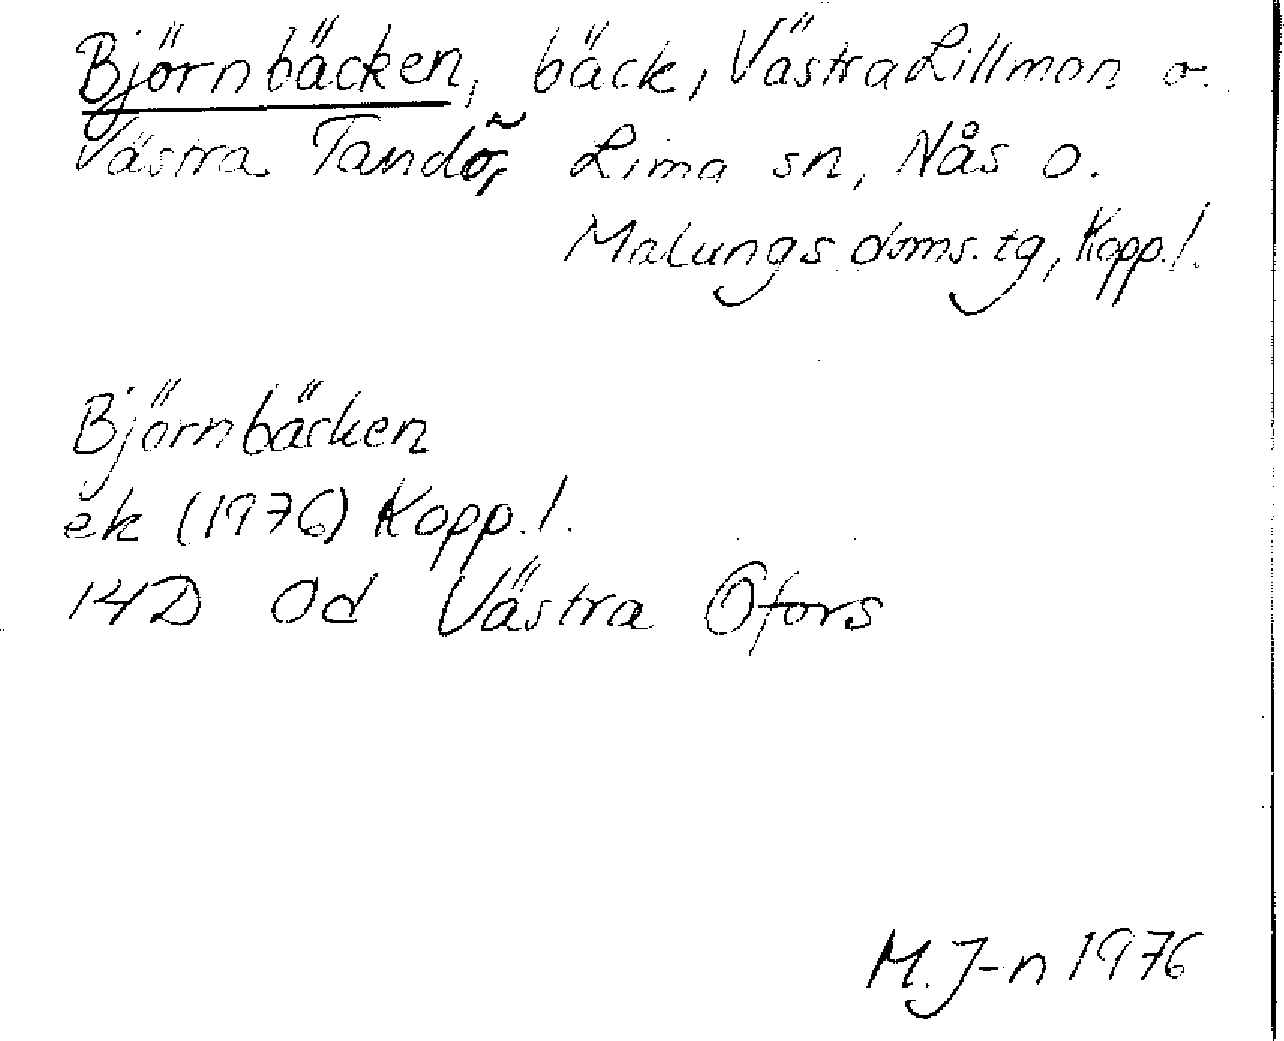 Björnbäcken, bäck, Västra Lillmon o.
Västra Tandö, Lima sn, Nås o.
Malungs doms. tg, Kopp. l.
Björnbäcken
ek (1976) Kopp. l.
14D 0d Västra Ofors
M. J-n 1976